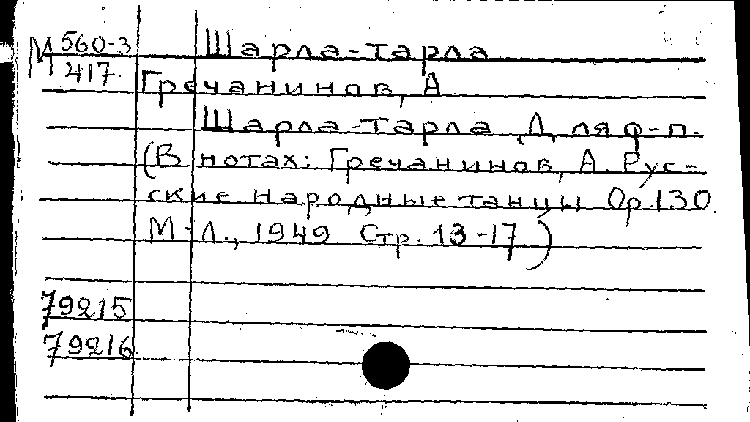 М 560-3 Шарла-тарла
417. Гречанинов, А
Шарла-тарла Для ф-п.
(В нотах: Гречанинов, А. Рус-
ские народные танцы Ор.130
М-Л., 1949 Стр. 13-17)
79215
79216